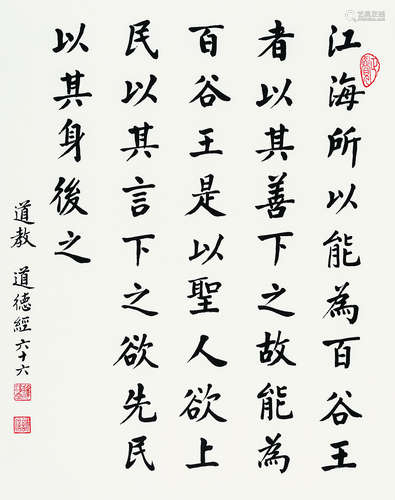 江海所以能為百谷王
者以其善下之故能為
百谷王是以聖人欲上
民以其言下之欲先民
以其身後之
道教 道德經六十六